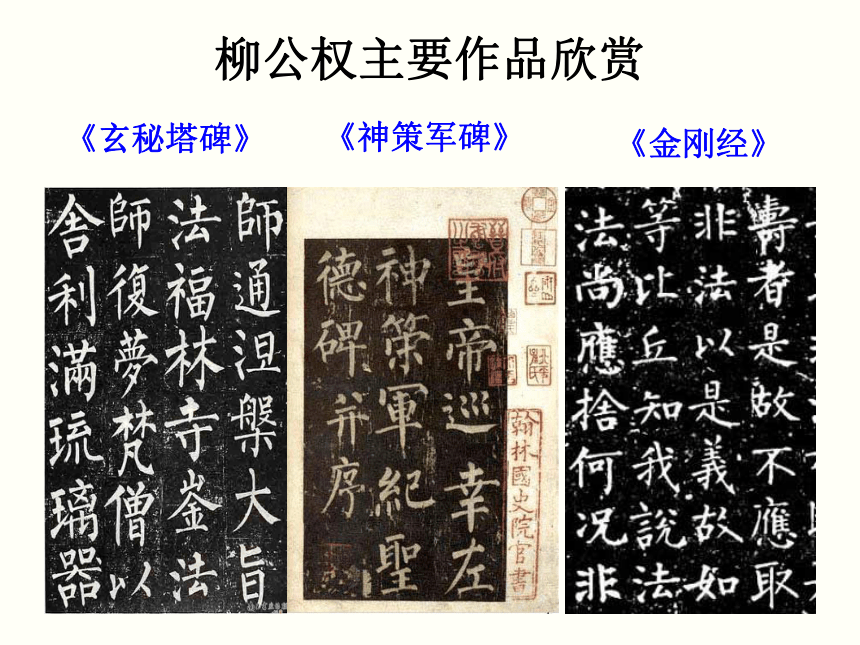 柳公权主要作品欣赏
《玄秘塔碑》
《神策军碑》
《金刚经》
師通涅槃大旨
法福林寺崟法
師復夢梵僧以
舍利滿琉璃器
皇帝巡幸左
神策軍紀聖
德碑并序
翰林國史院官書
壽者是故不應取
非法以是義故如
等比丘知我說法
法尚應捨何況非